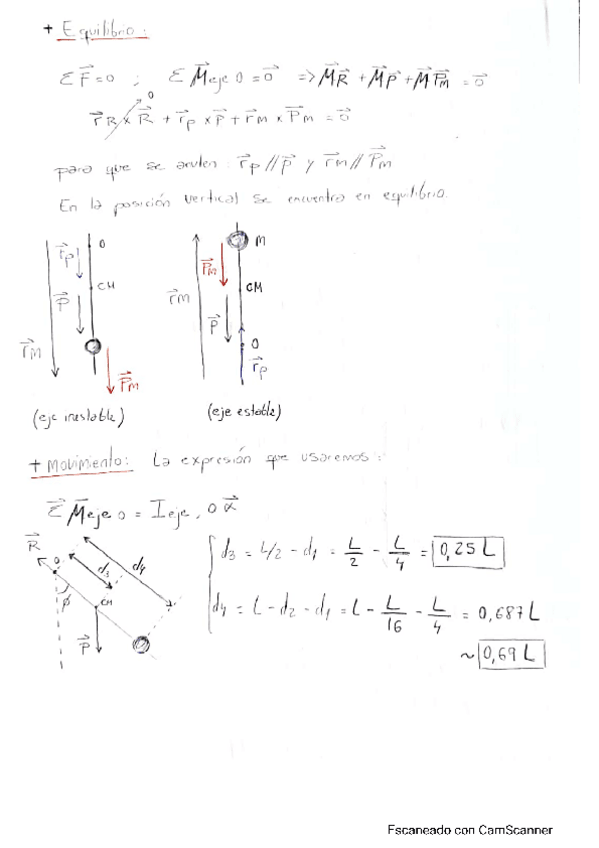 + Equilibrio:
Σ F⃗ = 0 ; Σ M⃗ eje O = 0⃗ => M⃗R⃗ + M⃗P⃗ + M⃗P⃗m = 0⃗
0
r⃗R x R⃗ + r⃗p x P⃗ + r⃗m x P⃗m = 0⃗
para que se anulen: r⃗p // P⃗ y r⃗m // P⃗m
En la posición vertical se encuentra en equilibrio.
r⃗p O
CM
P⃗
r⃗M
P⃗m
(eje inestable)
M
P⃗m
r⃗m CM
P⃗
O
r⃗p
(eje estable)
+ Movimiento: La expresión que usaremos:
Σ⃗ M⃗ eje O = I eje, O α⃗
R⃗ O d3 d4
φ CM
P⃗
d3 = L/2 - d1 = L/2 - L/4 = 0,25 L
d4 = L - d2 - d1 = L - L/16 - L/4 = 0,687 L
~ 0,69 L
Escaneado con CamScanner